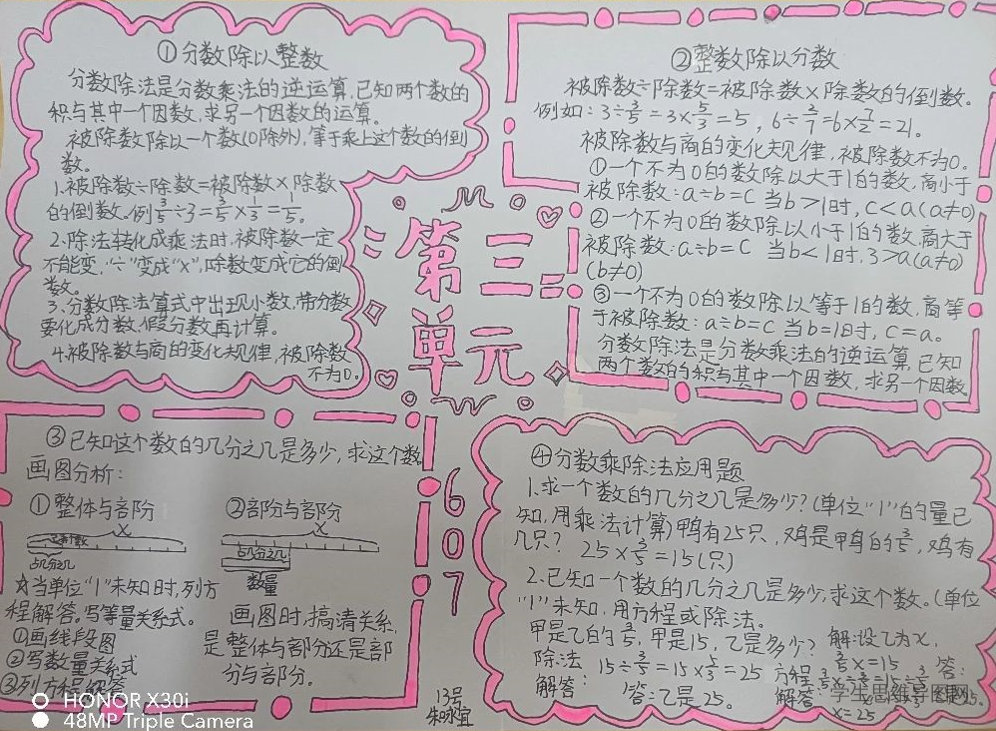 ①分数除以整数
分数除法是分数乘法的逆运算,已知两个数的
积与其中一个因数,求另一个因数的运算。
被除数除以一个数(0除外),等于乘上这个数的倒
数。
1.被除数÷除数=被除数×除数
的倒数。例3/5÷3=3/5×1/3=1/5。
2.除法转化成乘法时,被除数一定
不能变,"÷"变成"×",除数变成它的倒
数。
3.分数除法算式中出现小数,带分数
要化成分数,假分数再计算。
4.被除数与商的变化规律,被除数
不为0。
②整数除以分数
被除数÷除数=被除数×除数的倒数。
例如:3÷3/5=3×5/3=5,6÷2/7=6×7/2=21。
被除数与商的变化规律,被除数不为0.
①一个不为0的数除以大于1的数,商小于
被除数:a÷b=C 当b>1时,c<a(a≠0)
②一个不为0的数除以小于1的数,商大于
被除数:a÷b=C 当b<1时,3>a(a≠0)
(b≠0)
③一个不为0的数除以等于1的数,商等
于被除数:a÷b=C 当b=1时,c=a。
分数除法是分数乘法的逆运算,已知
两个数的的积与其中一个因数,求另一个因数
第三
单元
607
③已知这个数的几分之几是多少,求这个数
画图分析:
①整体与部分
x
占几分之几
对当单位"1"未知时,列方
程解答。写等量关系式。
①画线段图
②写数量关系式
③列方程解答
②部分与部分
x
占几分之几
数量
画图时,搞清关系,
是整体与部分还是部
分与部分。
④分数乘除法应用题
1.求一个数的几分之几是多少?(单位"1"的量已
知,用乘法计算)鸭有25只,鸡是鸭的3/5,鸡有
几只? 25×3/5=15(只)
2.已知一个数的几分之几是多少,求这个数。(单位
"1"未知,用方程或除法。
甲是乙的3/5,甲是15,乙是多少? 解:设乙为x,
除法 15÷3/5=15×5/3=25 方程 3/5x=15 答:
解答: 答:乙是25。 解答:
x=25
13号
朱咏宜
HONOR X30i
48MP Triple Camera
学生思维导图网